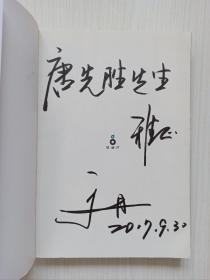 唐先胜先生
雅正
于丹
2017.9.30